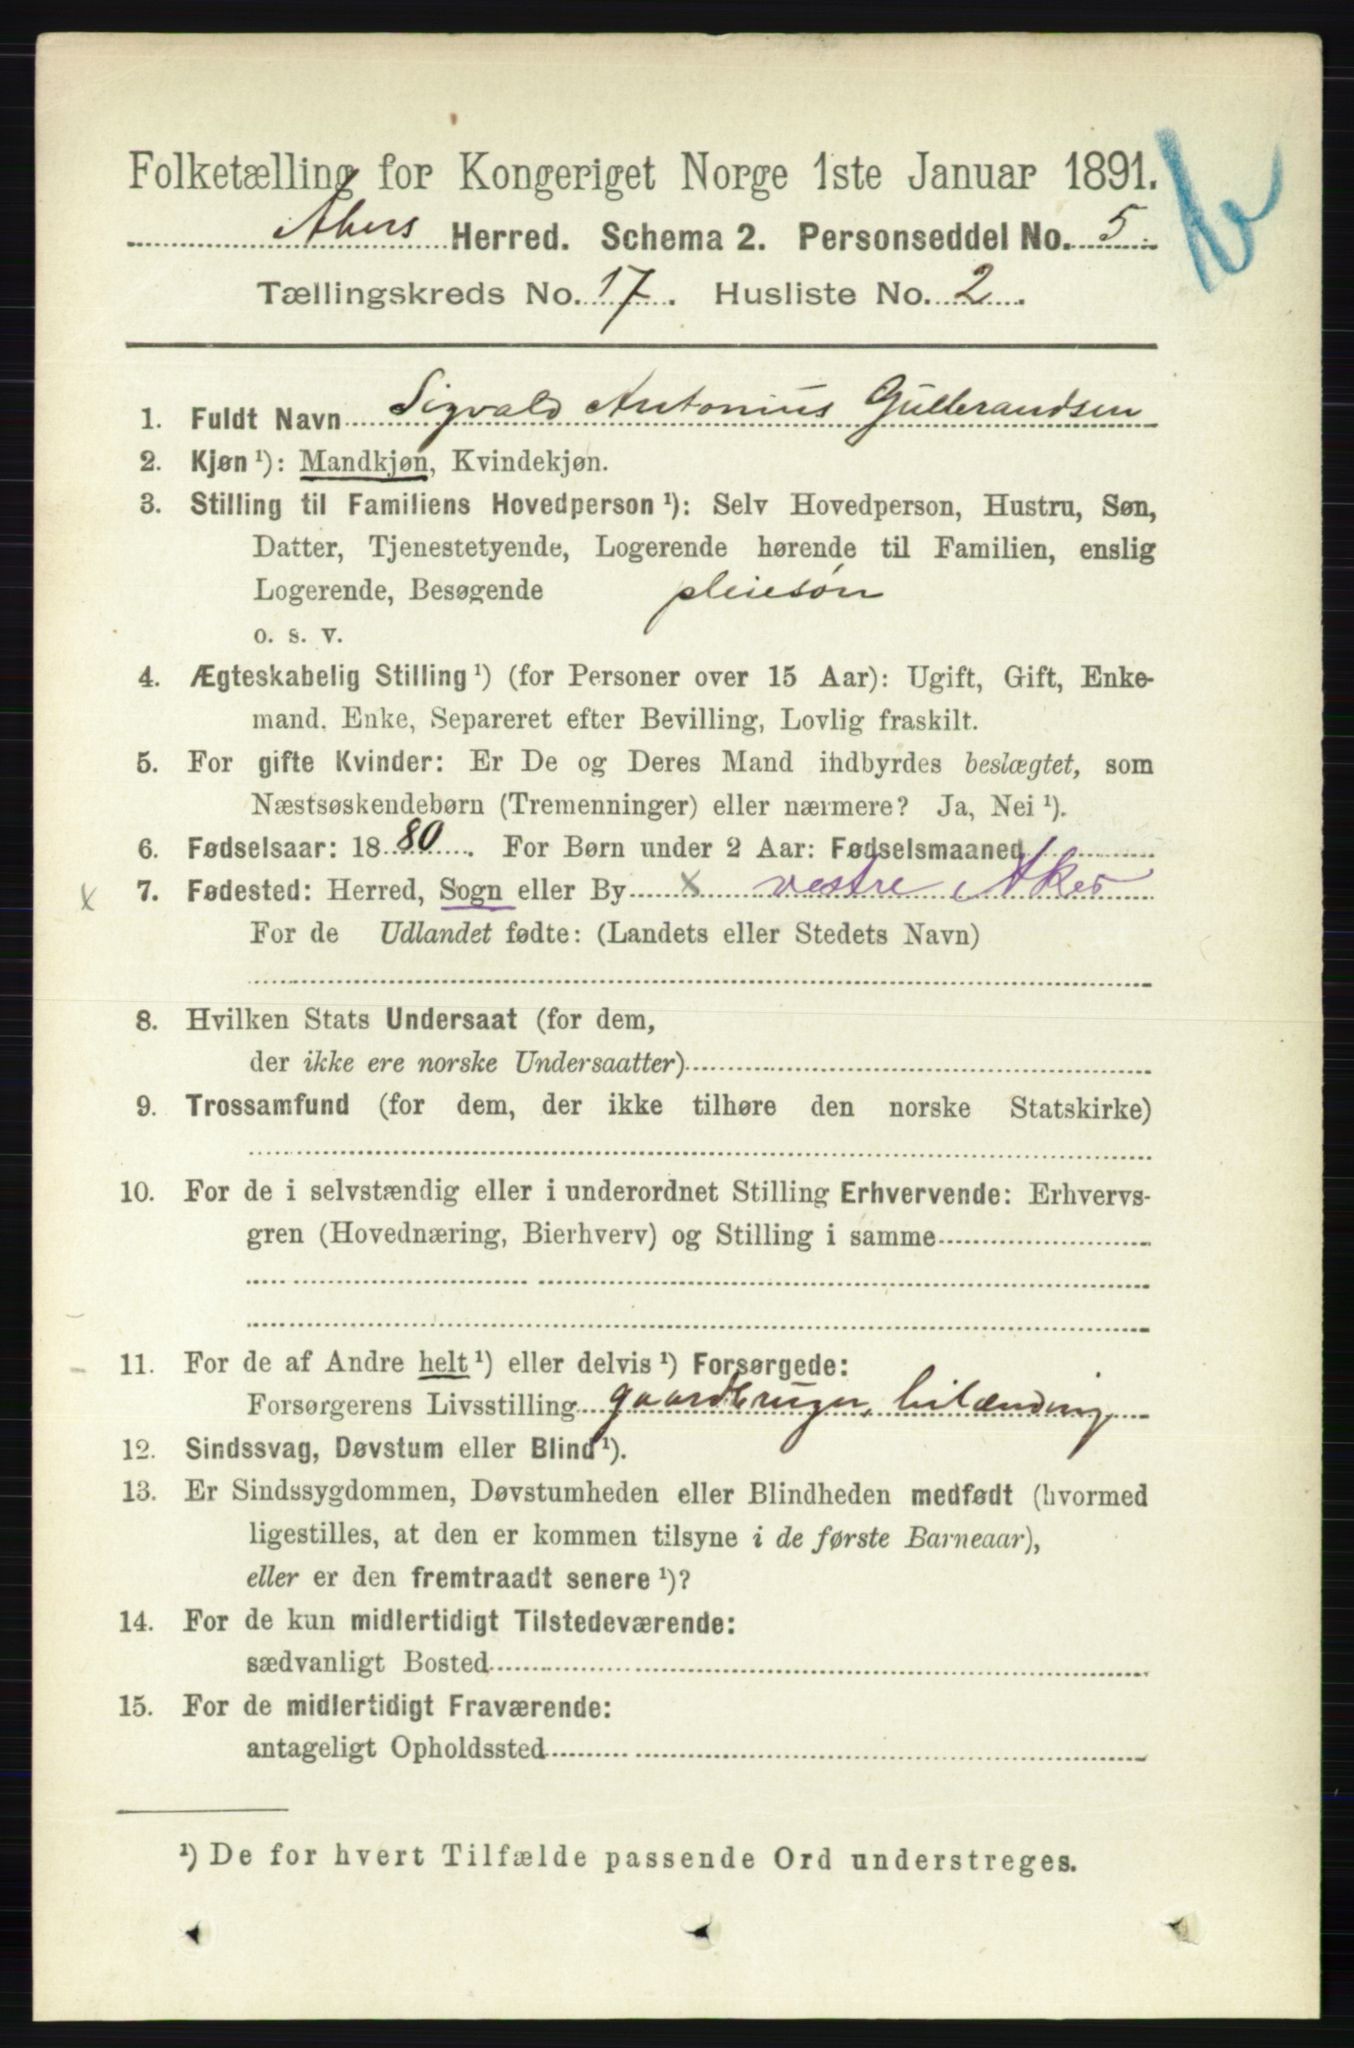 Folketælling for Kongeriget Norge 1ste Januar 1891.
Akers Herred. Schema 2. Personseddel No. 5.
Tællingskreds No. 17. Husliste No. 2.
1. Fuldt Navn Sigvald Antonius Gulbrandsen
2. Kjøn ¹): Mandkjøn, Kvindekjøn.
3. Stilling til Familiens Hovedperson ¹): Selv Hovedperson, Hustru, Søn,
Datter, Tjenestetyende, Logerende hørende til Familien, enslig
Logerende, Besøgende pleiesøn
o. s. v.
4. Ægteskabelig Stilling ¹) (for Personer over 15 Aar): Ugift, Gift, Enke-
mand, Enke, Separeret efter Bevilling, Lovlig fraskilt.
5. For gifte Kvinder: Er De og Deres Mand indbyrdes beslægtet, som
Næstsøskendebørn (Tremenninger) eller nærmere? Ja, Nei ¹).
6. Fødselsaar: 1880. For Børn under 2 Aar: Fødselsmaaned
x 7. Fødested: Herred, Sogn eller By x vestre Aker
For de Udlandet fødte: (Landets eller Stedets Navn)
8. Hvilken Stats Undersaat (for dem,
der ikke ere norske Undersaatter)
9. Trossamfund (for dem, der ikke tilhøre den norske Statskirke)
10. For de i selvstændig eller i underordnet Stilling Erhvervende: Erhvervs-
gren (Hovednæring, Bierhverv) og Stilling i samme
11. For de af Andre helt ¹) eller delvis ¹) Forsørgede:
Forsørgerens Livsstilling gaardbruger,
12. Sindssvag, Døvstum eller Blind ¹).
13. Er Sindssygdommen, Døvstumheden eller Blindheden medfødt (hvormed
ligestilles, at den er kommen tilsyne i de første Barneaar),
eller er den fremtraadt senere ¹)?
14. For de kun midlertidigt Tilstedeværende:
sædvanligt Bosted
15. For de midlertidigt Fraværende:
antageligt Opholdssted
¹) De for hvert Tilfælde passende Ord understreges.